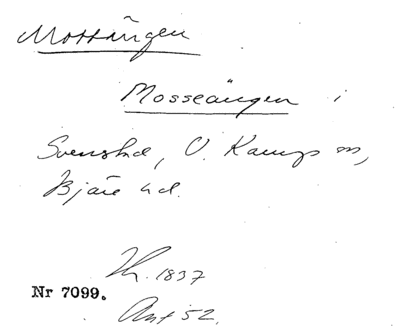 Mossängen
Mosseängen i
Svenstad, V. Karups sn,
Bjäre hd.
1837
Nr 7099.
52.